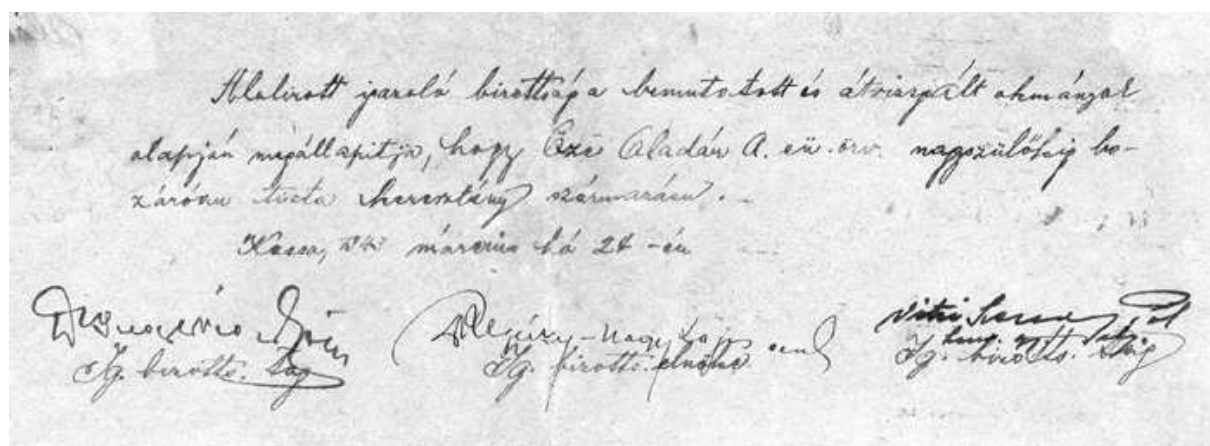 Alulirott igazoló bizottság a bemutatott és átvizsgált okmányok
alapján megállapitja, hogy Őze Aladár A. eü. örv. nagyszülőkig be-
záróan tiszta keresztény származásu.
Kassa, március hó 24-én
Ig. bizotts. tag
Ig. bizotts. elnöke
Ig. bizotts. tag